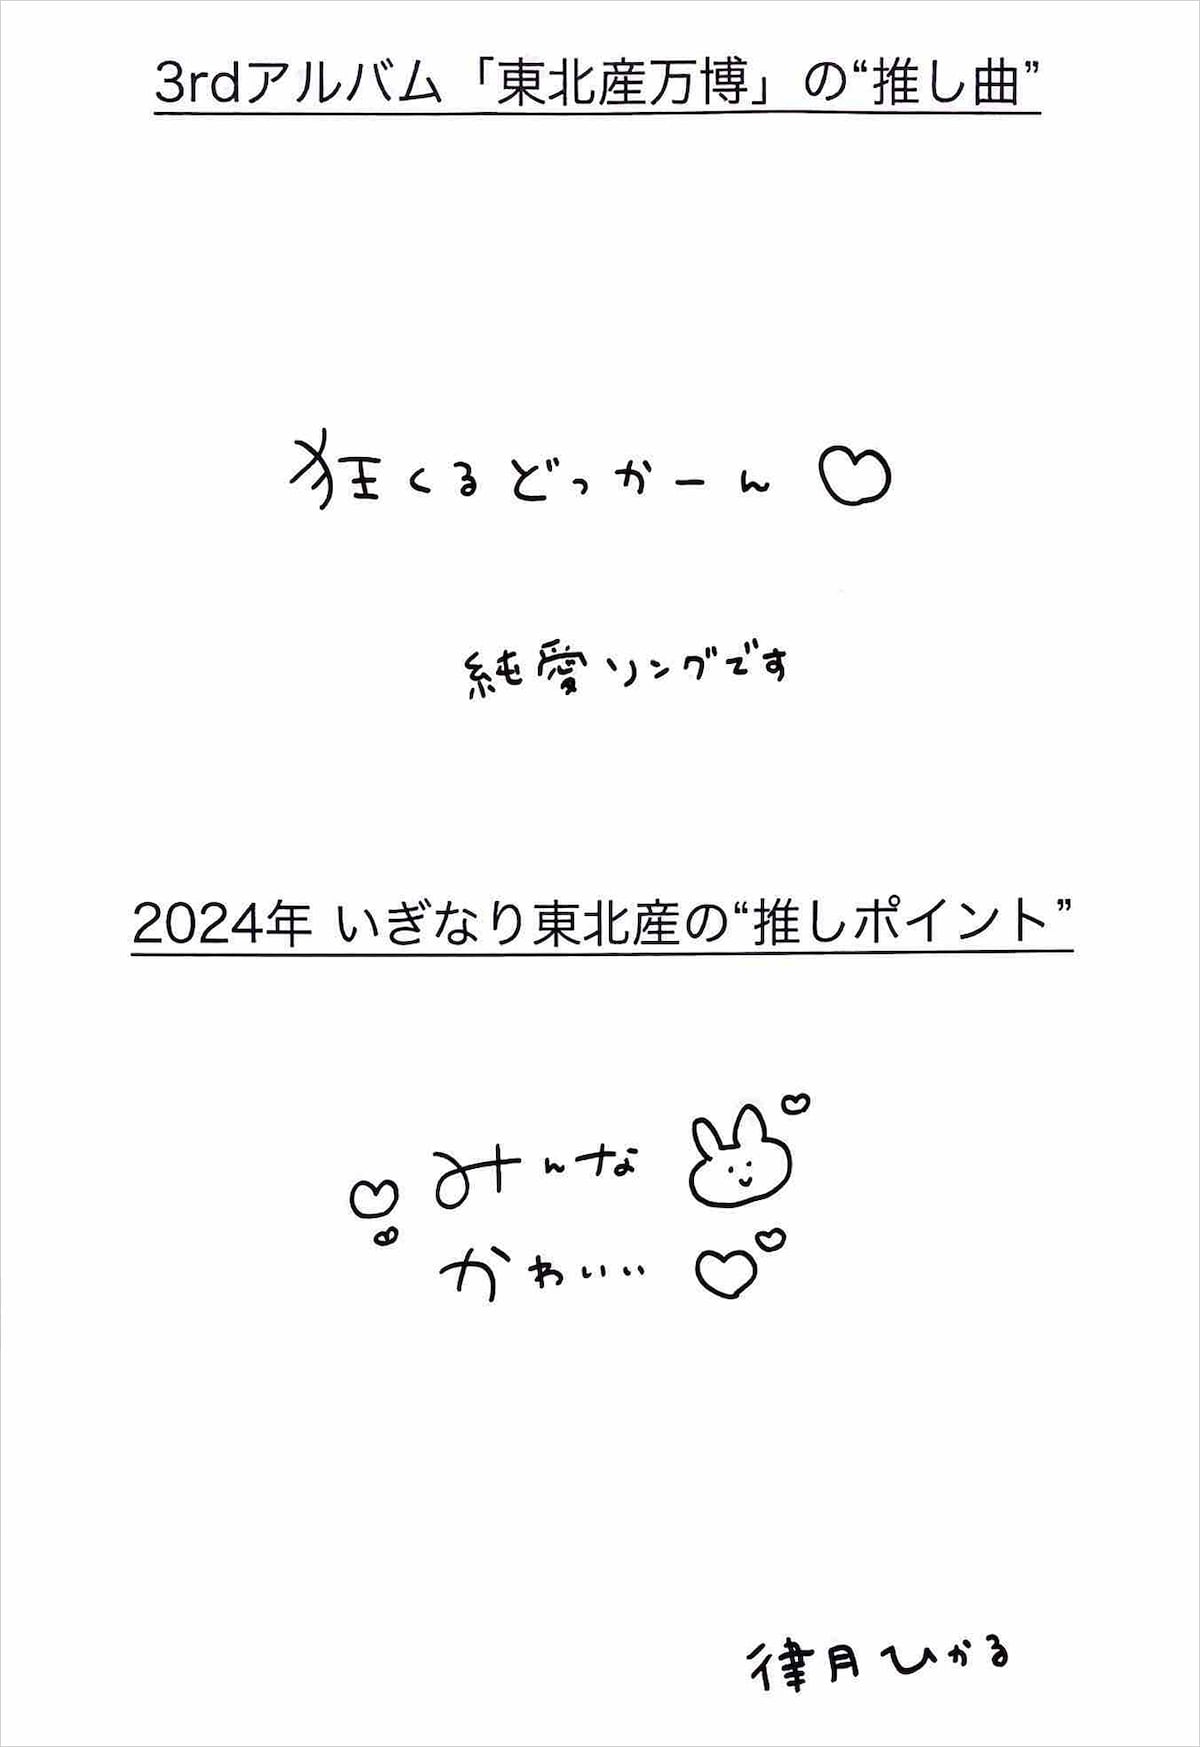 3rdアルバム「東北産万博」の“推し曲”
狂くるどっかーん♡
純愛ソングです
2024年 いぎなり東北産の“推しポイント”
みんな
かわいい♡
律月ひかる